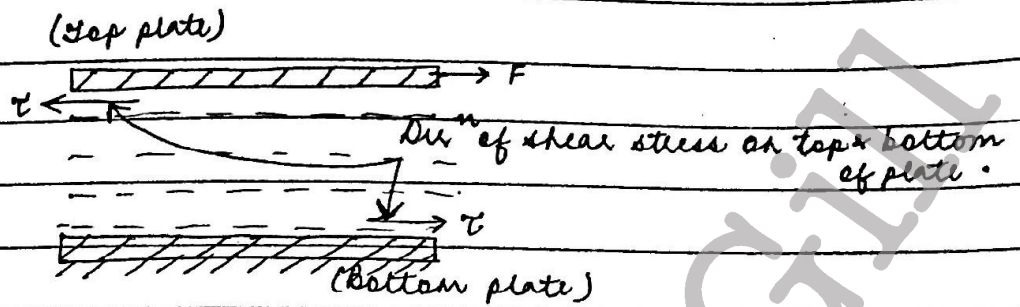 (Top plate)
F
τ
Dirⁿ of shear stress on top & bottom
of plate.
τ
(Bottom plate)
Gill